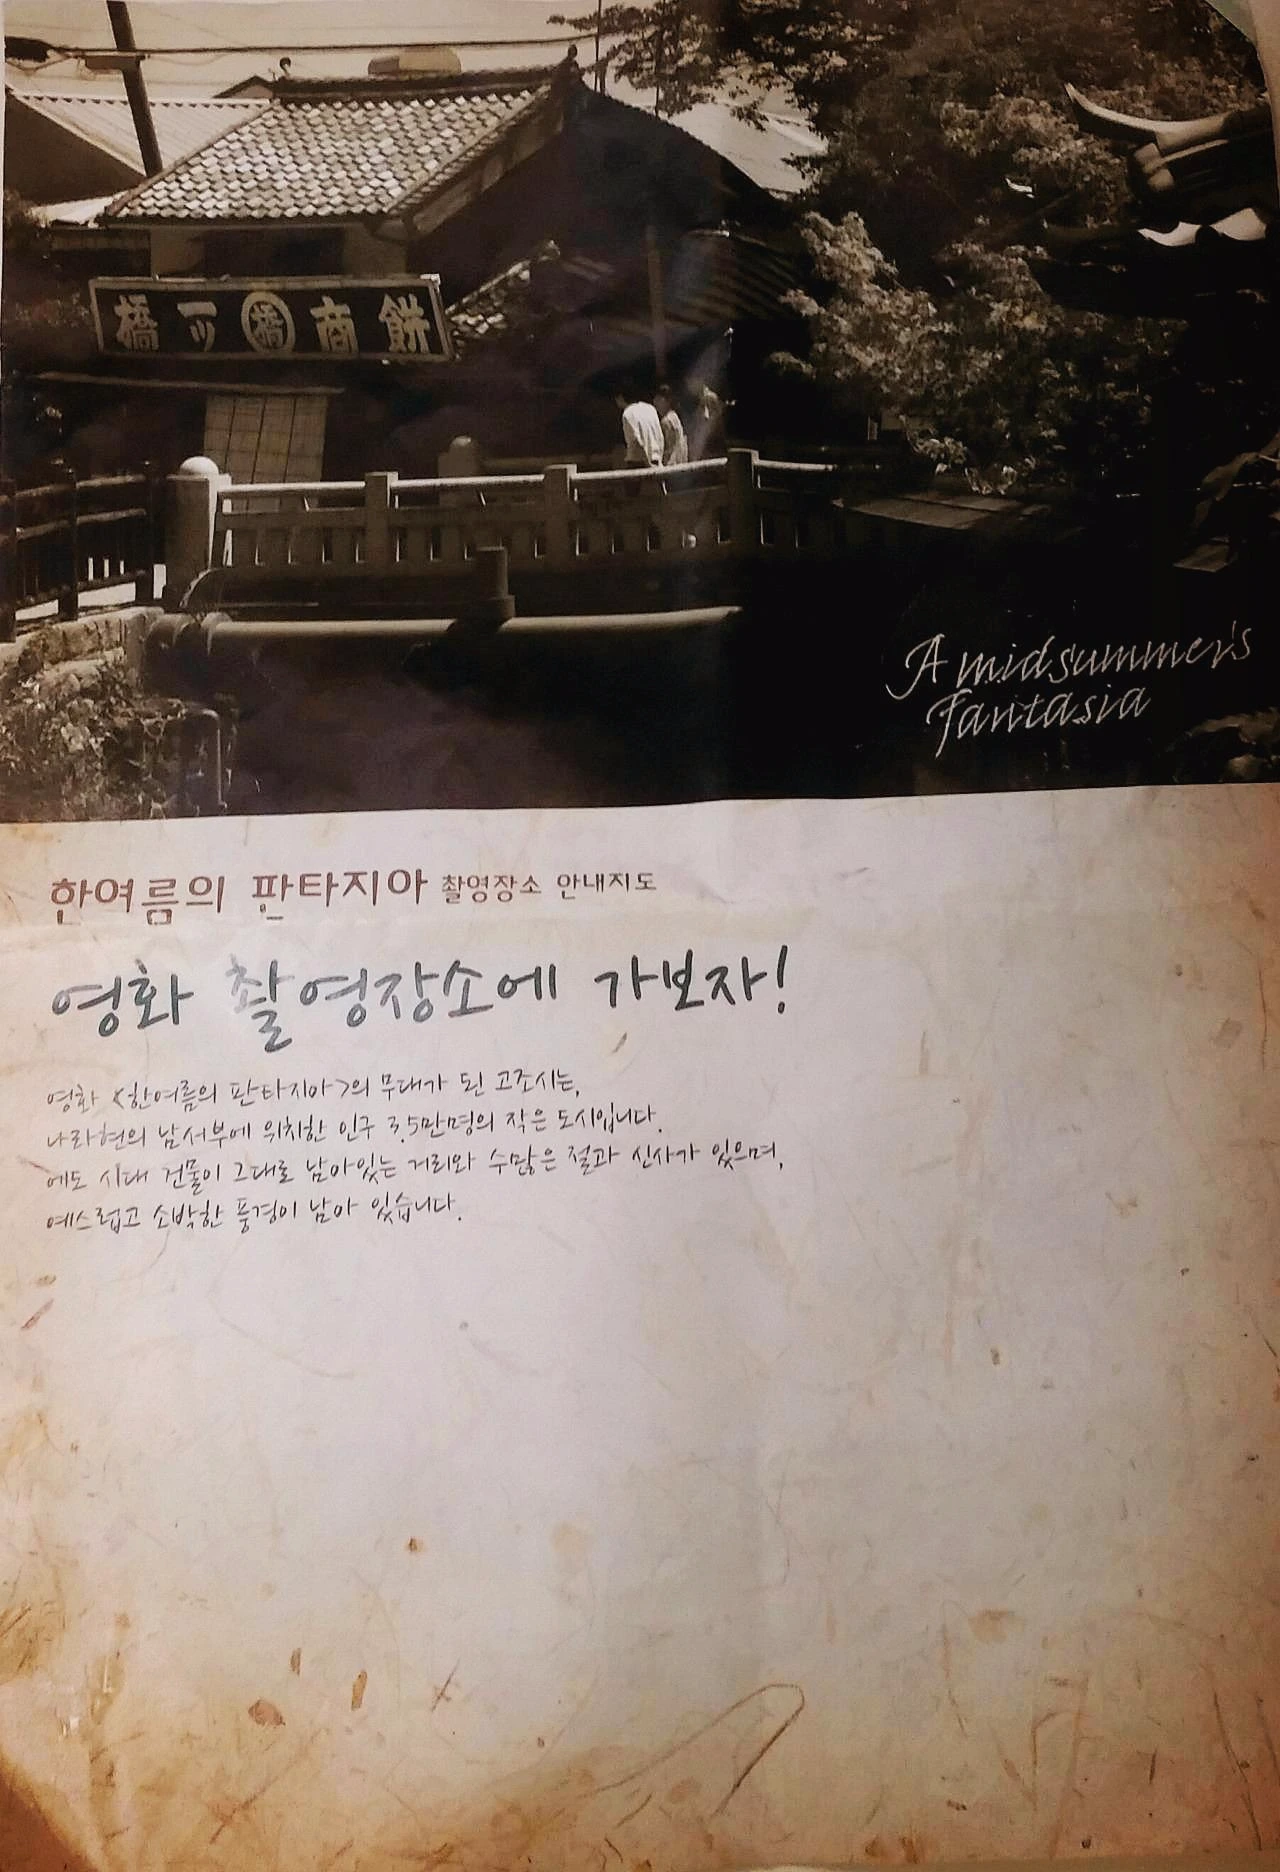 橋一ツ 橋 商餅
A midsummer's
Fantasia
한여름의 판타지아 촬영장소 안내지도
영화 촬영장소에 가보자!
영화 <한여름의 판타지아>의 무대가 된 고조시는,
나라현의 남서부에 위치한 인구 3.5만명의 작은 도시입니다.
에도 시대 건물이 그대로 남아있는 거리와 수많은 절과 신사가 있으며,
예스럽고 소박한 풍경이 남아 있습니다.